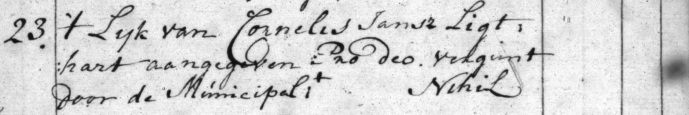 23. 't Lijk van Cornelis Jansz Ligt:
:hart aangegeven Pro Deo. vergunt
door de Municipal:t Nihil